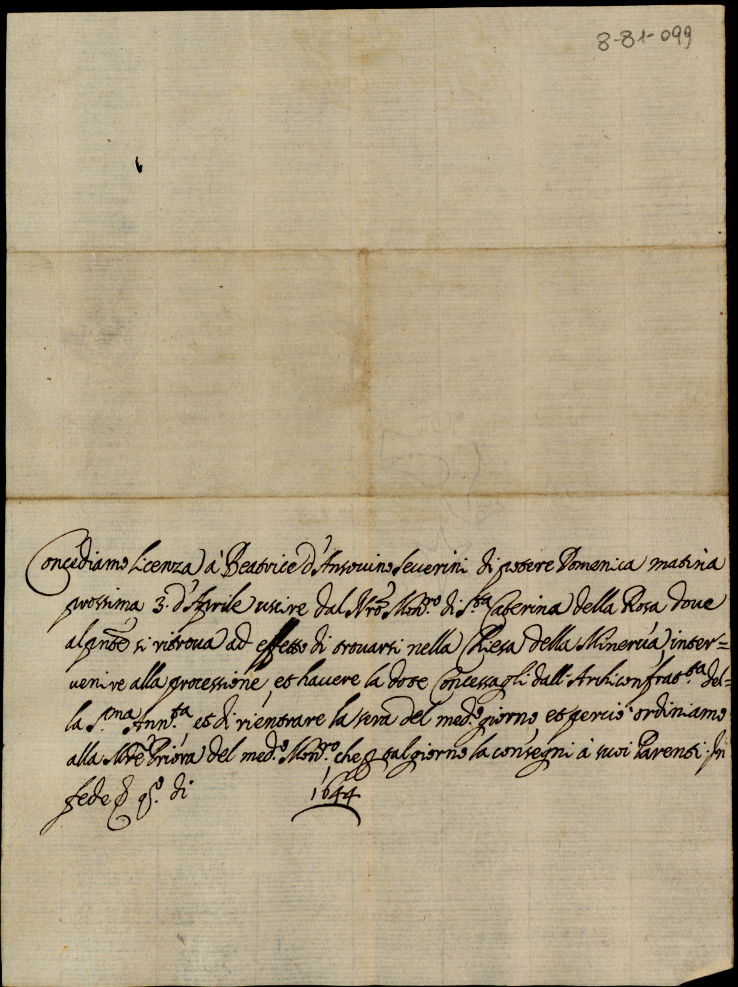 8-81-099
Concediamo licenza à Beatrice d'Ansovino Severini di potere Domenica matina
prossima 3. d'Aprile uscire dal Nrõ Mon.ro di S.ta Caterina della Rosa dove
al pnte si ritrova ad effetto di trovarsi nella Chiesa della Minerva, inter=
venire alla processione, et havere la dote Concessagli dall'Archiconfrat.ta del=
la S.ma Ann.ta et di rientrare la sera del med.o giorno et perciò ordiniamo
alla Mrẽ Priora del med.o Mon.ro che p tal giorno la consegni à suoi Parenti. In
fede di
1644